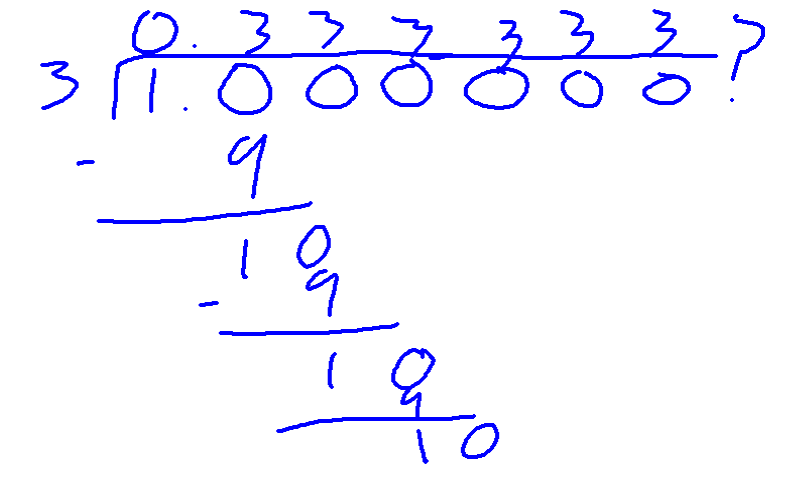 0.333333
3 1.000000?
- 9
10
- 9
10
9
10